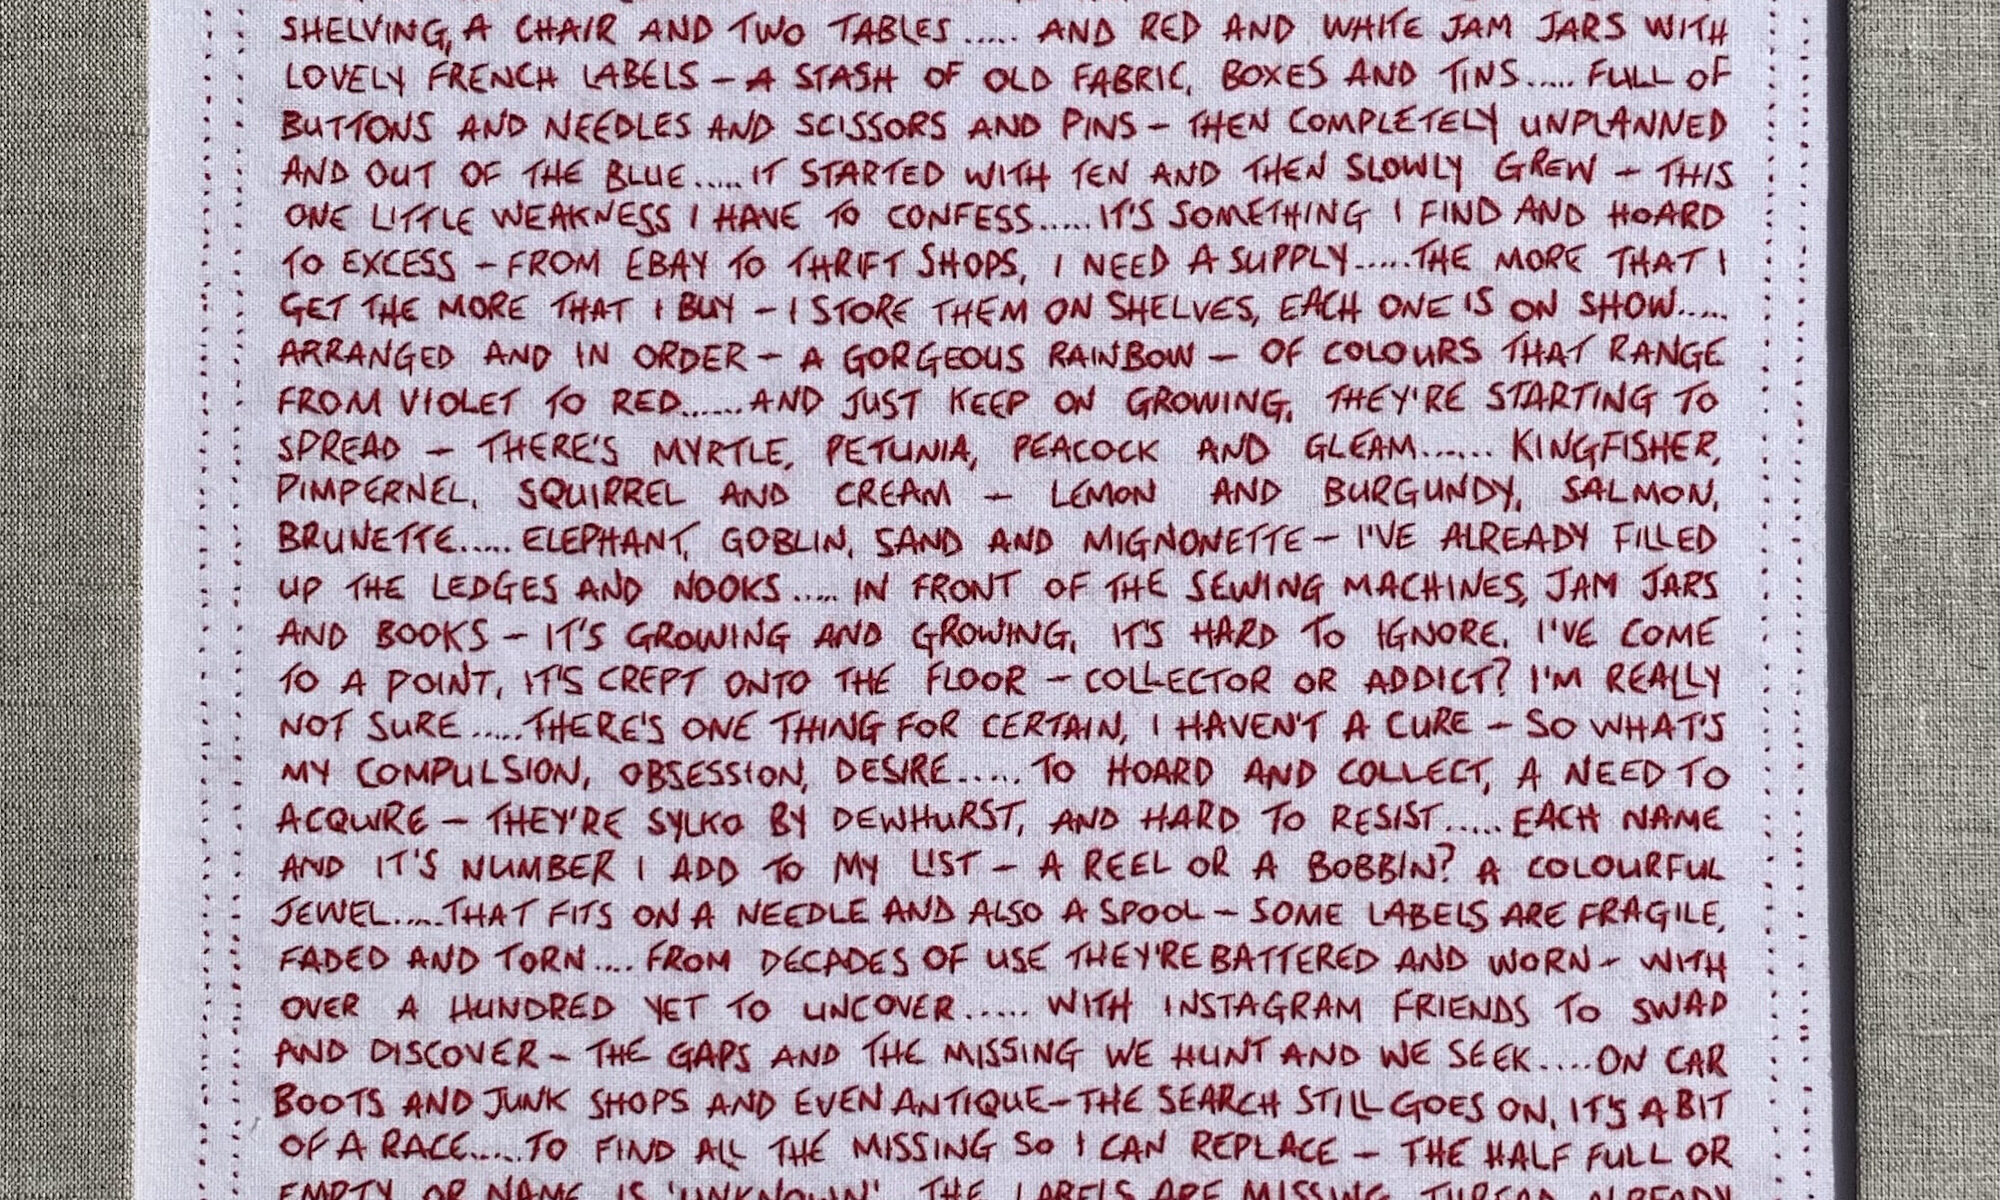 SHELVING, A CHAIR AND TWO TABLES..... AND RED AND WHITE JAM JARS WITH
LOVELY FRENCH LABELS – A STASH OF OLD FABRIC, BOXES AND TINS..... FULL OF
BUTTONS AND NEEDLES AND SCISSORS AND PINS – THEN COMPLETELY UNPLANNED
AND OUT OF THE BLUE..... IT STARTED WITH TEN AND THEN SLOWLY GREW – THIS
ONE LITTLE WEAKNESS I HAVE TO CONFESS..... IT'S SOMETHING I FIND AND HOARD
TO EXCESS – FROM EBAY TO THRIFT SHOPS, I NEED A SUPPLY..... THE MORE THAT I
GET THE MORE THAT I BUY – I STORE THEM ON SHELVES, EACH ONE IS ON SHOW.....
ARRANGED AND IN ORDER – A GORGEOUS RAINBOW – OF COLOURS THAT RANGE
FROM VIOLET TO RED...... AND JUST KEEP ON GROWING, THEY'RE STARTING TO
SPREAD – THERE'S MYRTLE, PETUNIA, PEACOCK AND GLEAM...... KINGFISHER,
PIMPERNEL, SQUIRREL AND CREAM – LEMON AND BURGUNDY, SALMON,
BRUNETTE..... ELEPHANT, GOBLIN, SAND AND MIGNONETTE – I'VE ALREADY FILLED
UP THE LEDGES AND NOOKS..... IN FRONT OF THE SEWING MACHINES, JAM JARS
AND BOOKS – IT'S GROWING AND GROWING, IT'S HARD TO IGNORE, I'VE COME
TO A POINT, IT'S CREPT ONTO THE FLOOR – COLLECTOR OR ADDICT? I'M REALLY
NOT SURE..... THERE'S ONE THING FOR CERTAIN, I HAVEN'T A CURE – SO WHAT'S
MY COMPULSION, OBSESSION, DESIRE..... TO HOARD AND COLLECT, A NEED TO
ACQUIRE – THEY'RE SYLKO BY DEWHURST, AND HARD TO RESIST..... EACH NAME
AND IT'S NUMBER I ADD TO MY LIST – A REEL OR A BOBBIN? A COLOURFUL
JEWEL..... THAT FITS ON A NEEDLE AND ALSO A SPOOL – SOME LABELS ARE FRAGILE,
FADED AND TORN.... FROM DECADES OF USE THEY'RE BATTERED AND WORN – WITH
OVER A HUNDRED YET TO UNCOVER..... WITH INSTAGRAM FRIENDS TO SWAP
AND DISCOVER – THE GAPS AND THE MISSING WE HUNT AND WE SEEK.... ON CAR
BOOTS AND JUNK SHOPS AND EVEN ANTIQUE – THE SEARCH STILL GOES ON, IT'S A BIT
OF A RACE..... TO FIND ALL THE MISSING SO I CAN REPLACE – THE HALF FULL OR
EMPTY OR NAME IS 'UNKNOWN', THE LABELS ARE MISSING, THREAD ALREADY